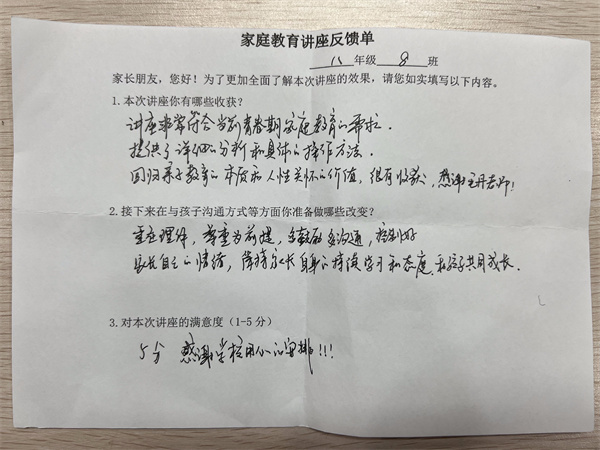 家庭教育讲座反馈单
八 年级 8 班
家长朋友，您好！为了更加全面了解本次讲座的效果，请您如实填写以下内容。
1.本次讲座你有哪些收获？
讲座非常符合当前青春期家庭教育的需求。
提供了详细的分析和具体的操作方法。
回归亲子教育的本质和人性关怀的价值，很有收获，感谢老师！
2.接下来在与孩子沟通方式等方面你准备做哪些改变？
重在理解，尊重为前提，多鼓励多沟通，控制好
家长自己的情绪，保持家长自身的持续学习和态度，和孩子共同成长。
3.对本次讲座的满意度（1-5 分）
5分 感谢学校用心的安排！！！